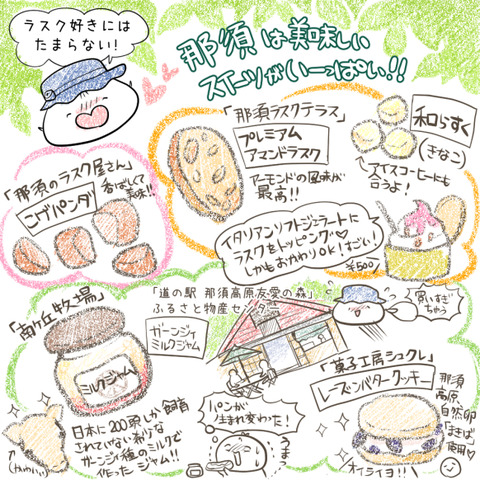 ラスク好きには
たまらない!
那須は美味しい
スイーツがいーっぱい!!
「那須ラスクテラス」
プレミアム
アマンドラスク
アーモンドの風味が
最高!!
和らすく
(きなこ)
アイスコーヒーにも
合うよ!
「那須のラスク屋さん」
香ばしくて
美味!!
コブパンダ
イタリアンソフトジェラートに
ラスクをトッピング♡
しかもおかわりOK!すごい!
¥500
「南ヶ丘牧場」
ミルクジャム
「道の駅 那須高原友愛の森」
ふるさと物産センター
ガーンジィ
ミルクジャム
買いすぎ
ちゃう
日本に200頭しか飼育
されていない
ガーンジィ種のミルクで
作ったジャム!!
(かわいい)
パンが
生まれ変わった!
うま
「菓子工房シュクレ」
レーズンバタークッキー
那須
高原
自然卵
「まきば」
使用♡
オイシイヨ!!